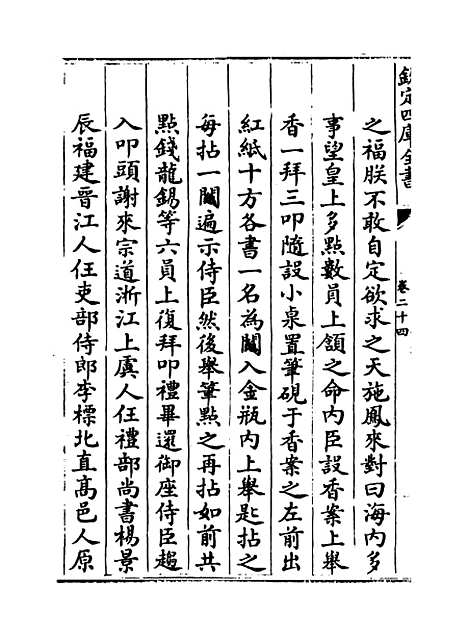 欽定四庫全書
卷二十四
之福朕不敢自定欲求之天施鳳來對曰海内多
事望皇上多點數員上頷之命内臣設香案上舉
香一拜三叩隨設小桌置筆硯于香案之左前出
紅紙十方各書一名為鬮入金瓶内上舉匙拈之
每拈一鬮遍示侍臣然後舉筆點之再拈如前共
點錢龍錫等六員上復拜叩禮畢還御座侍臣趨
入叩頭謝來宗道浙江上虞人任禮部尚書楊景
辰福建晉江人任吏部侍郎李標北直髙邑人原